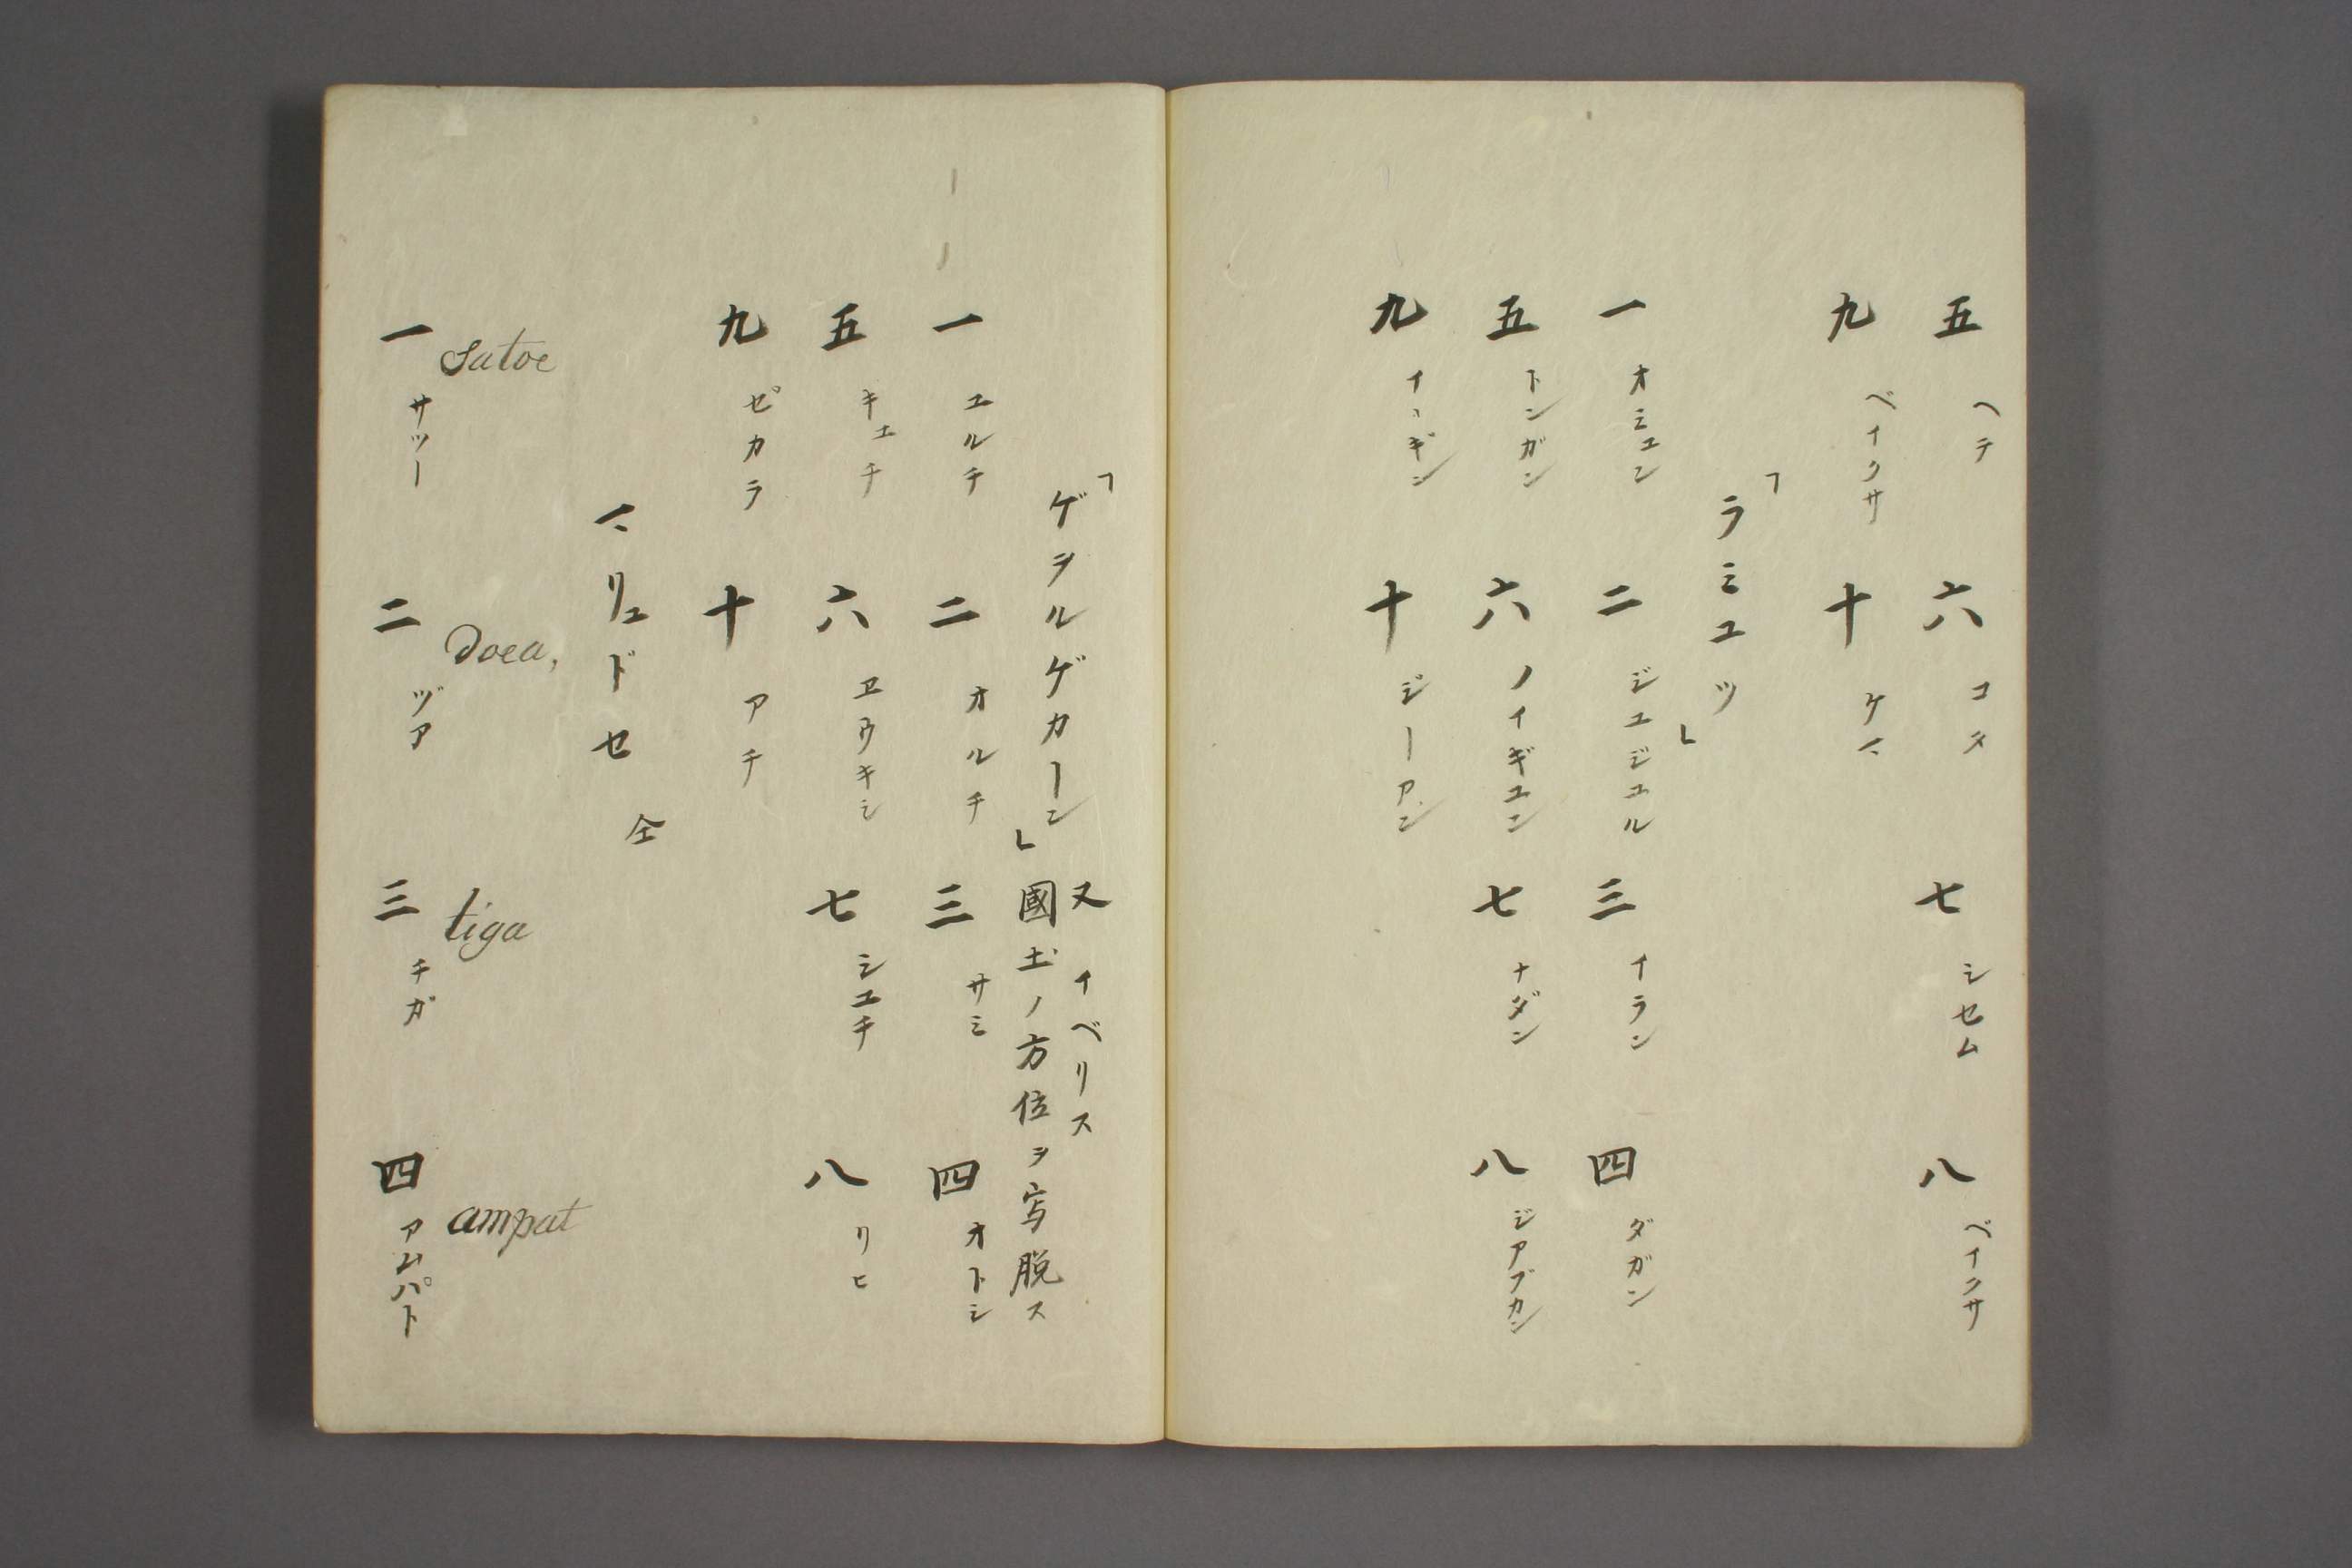 五 ヘテ 六 コタ 七 シセム 八 ベイクサ
九 ベイクサ 十 ケマ
「ラミユツ」
一 オミユン 二 ジユジユル 三 イラン 四 ダガン
五 トンガン 六 ノイギユン 七 ナダン 八 ジアブカン
九 イヽギン 十 ジーアン
「ゲヲルゲカーン」 又 イベリス
國土ノ方位ヲ写脱ス
一 ユルチ 二 オルチ 三 サミ 四 オトシ
五 キエチ 六 ヱウキシ 七 シユチ 八 リヒ
九 ゼカラ 十 アチ
マリユドセ 仝
satoe doea, tiga ampat
一 サツー 二 ヅア 三 チガ 四 アムパト